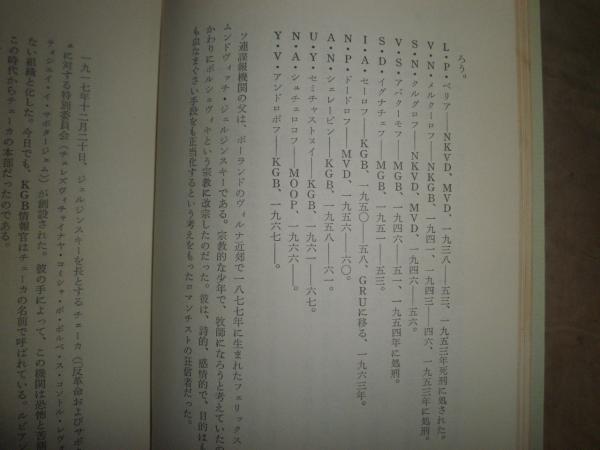 ろう。
L・P・ベリア――NKVD、MVD、一九三八――五三、一九五三年死刑に処された。
V・N・メルクーロフ――NKGB、一九四一、一九四三――四六、一九五三年に処刑。
S・N・クルグロフ――NKVD、MVD、一九四六――五六。
V・S・アバクーモフ――MGB、一九四六――五一、一九五四年に処刑。
S・D・イグナチェフ――MGB、一九五一――五三。
I・A・セーロフ――KGB、一九五〇――五八、GRUに移る、一九六三年。
N・P・ドードロフ――MVD、一九五六――六〇。
A・N・シェレーピン――KGB、一九五八――六一。
U・Y・セミチャストヌイ――KGB、一九六一――六七。
N・A・シュチェロコフ――MOOP、一九六六――。
Y・V・アンドロポフ――KGB、一九六七――。
ソ連諜報機関の父は、ポーランドのヴィルナ近郊で一八七七年に生まれたフェリックス
ムンドヴィッチ・ジェルジンスキーである。宗教的な少年で、牧師になろうと考えていたの
かわりにボルシェヴィキという宗教に改宗したのだった。彼は、詩的、感情的で、目的はも
も血なまぐさい手段をも正当化するという考えをもったロマンチストの狂信者だった。
一九一七年十二月二十日、ジェルジンスキーを長とするチェーカ（反革命およびサボ
に対する特別委員会（チェレズヴィチャイナヤ・コミシヤ・ポ・ボルベ・ス・コントル・レヴ
ティシエイ・イ・サボタージェム）が創設された。彼の手によって、この機関は恐怖と苦
ない組織と化した。今日でも、KGB情報官はチェーカの名前で呼ばれている。ルビアン
この時代からチェーカの本部だったのである。